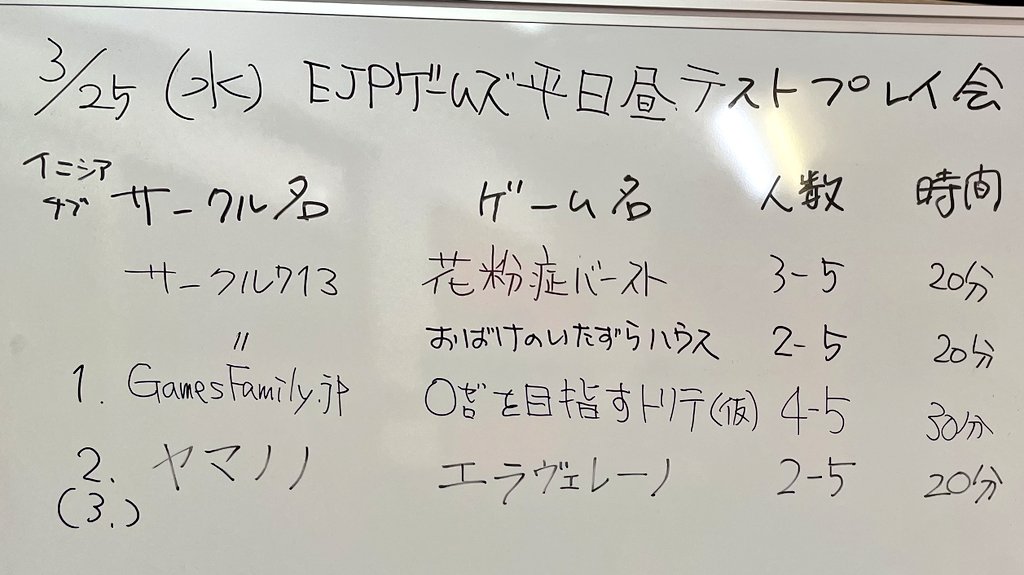 3/25 (水) EJPゲームズ平日昼テストプレイ会
イニシアチブ サークル名 ゲーム名 人数 時間
サークル713 花粉症バースト 3-5 20分
〃 おばけのいたずらハウス 2-5 20分
1. GamesFamily.jp 0ゼロを目指すトリテ(仮) 4-5 30分
2. ヤマノノ エラヴェレーノ 2-5 20分
(3.)